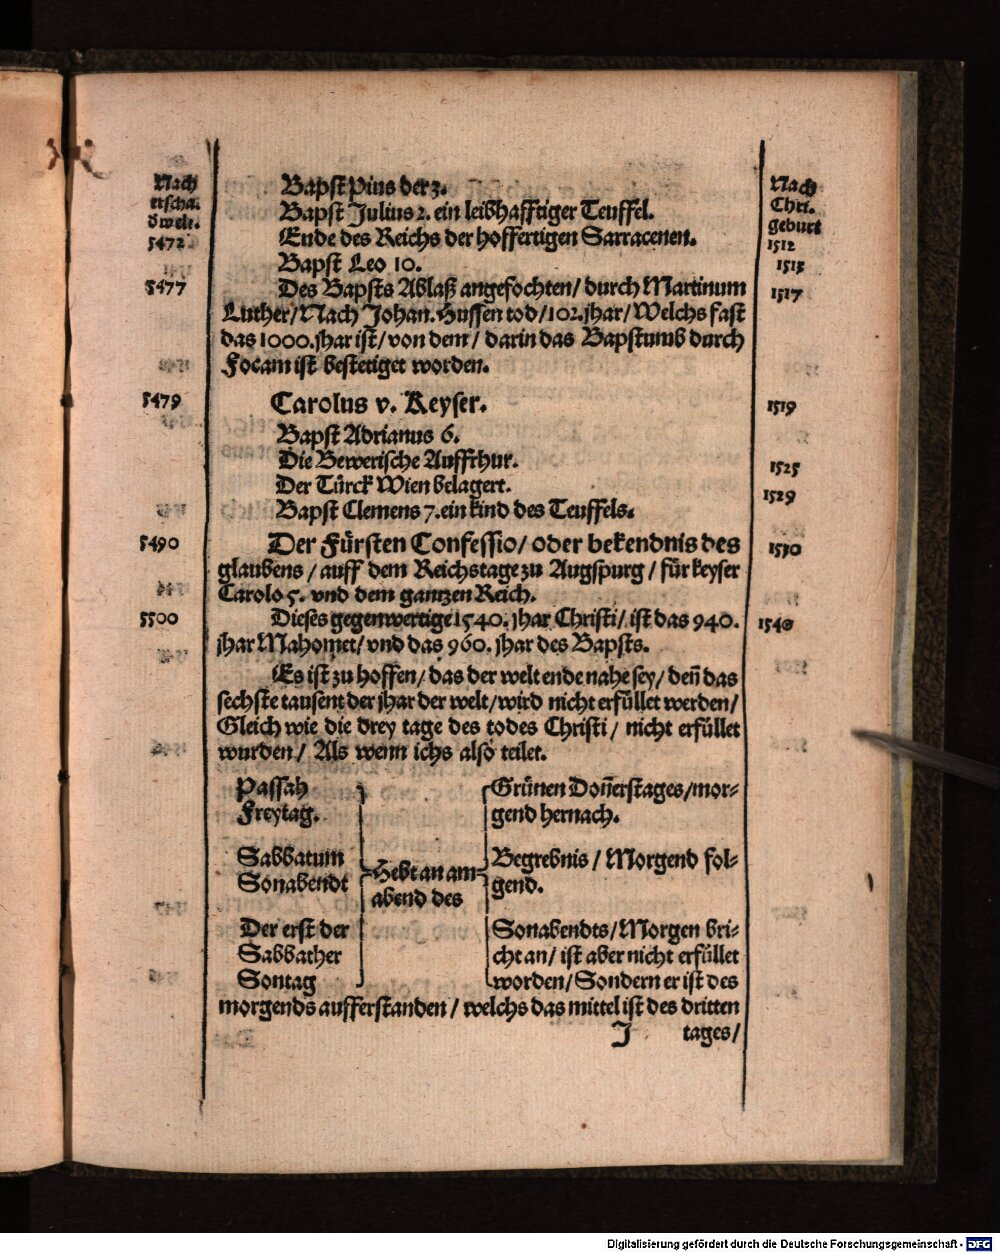 Nach
erscha.
d welt.
Nach
Chri.
geburt
Bapst Pius der 3.
Bapst Julius 2. ein leibhafftiger Teuffel.
5472 Ende des Reichs der hoffertigen Sarracenen. 1512
Bapst Leo 10. 1513
5477 Des Bapsts Ablaß angefochten/ durch Martinum 1517
Luther/ Nach Johan. Hussen tod/ 102. jhar/ Welchs fast
das 1000. jhar ist/ von dem/ darin das Bapstumb durch
Focam ist bestetiget worden.
5479 Carolus v. Keyser. 1519
Bapst Adrianus 6.
Die Bewerische Auffrhur. 1525
Der Türck Wien belagert. 1529
Bapst Clemens 7. ein kind des Teuffels.
5490 Der Fürsten Confessio/ oder bekendnis des 1530
glaubens/ auff dem Reichstage zu Augspurg/ für keyser
Carolo 5. vnd dem gantzen Reich.
5500 Dieses gegenwertige 1540. jhar Christi/ ist das 940. 1540
jhar Mahomet/ vnd das 960. jhar des Bapsts.
Es ist zu hoffen/ das der welt ende nahe sey/ deñ das
sechste tausent der jhar der welt/ wird nicht erfüllet werden/
Gleich wie die drey tage des todes Christi/ nicht erfüllet
wurden/ Als wenn ichs also teilet.
Passah
Freytag.
Sabbatum
Sonabendt
Der erst der
Sabbather
Sontag
Hebt an am
abend des
Grünen Doñerstages/ mor-
gend hernach.
Begrebnis/ Morgend fol-
gend.
Sonabendts/ Morgen bri-
cht an/ ist aber nicht erfüllet
worden/ Sondern er ist des
morgends aufferstanden/ welchs das mittel ist des dritten
J tages/
Digitalisierung gefördert durch die Deutsche Forschungsgemeinschaft - DFG